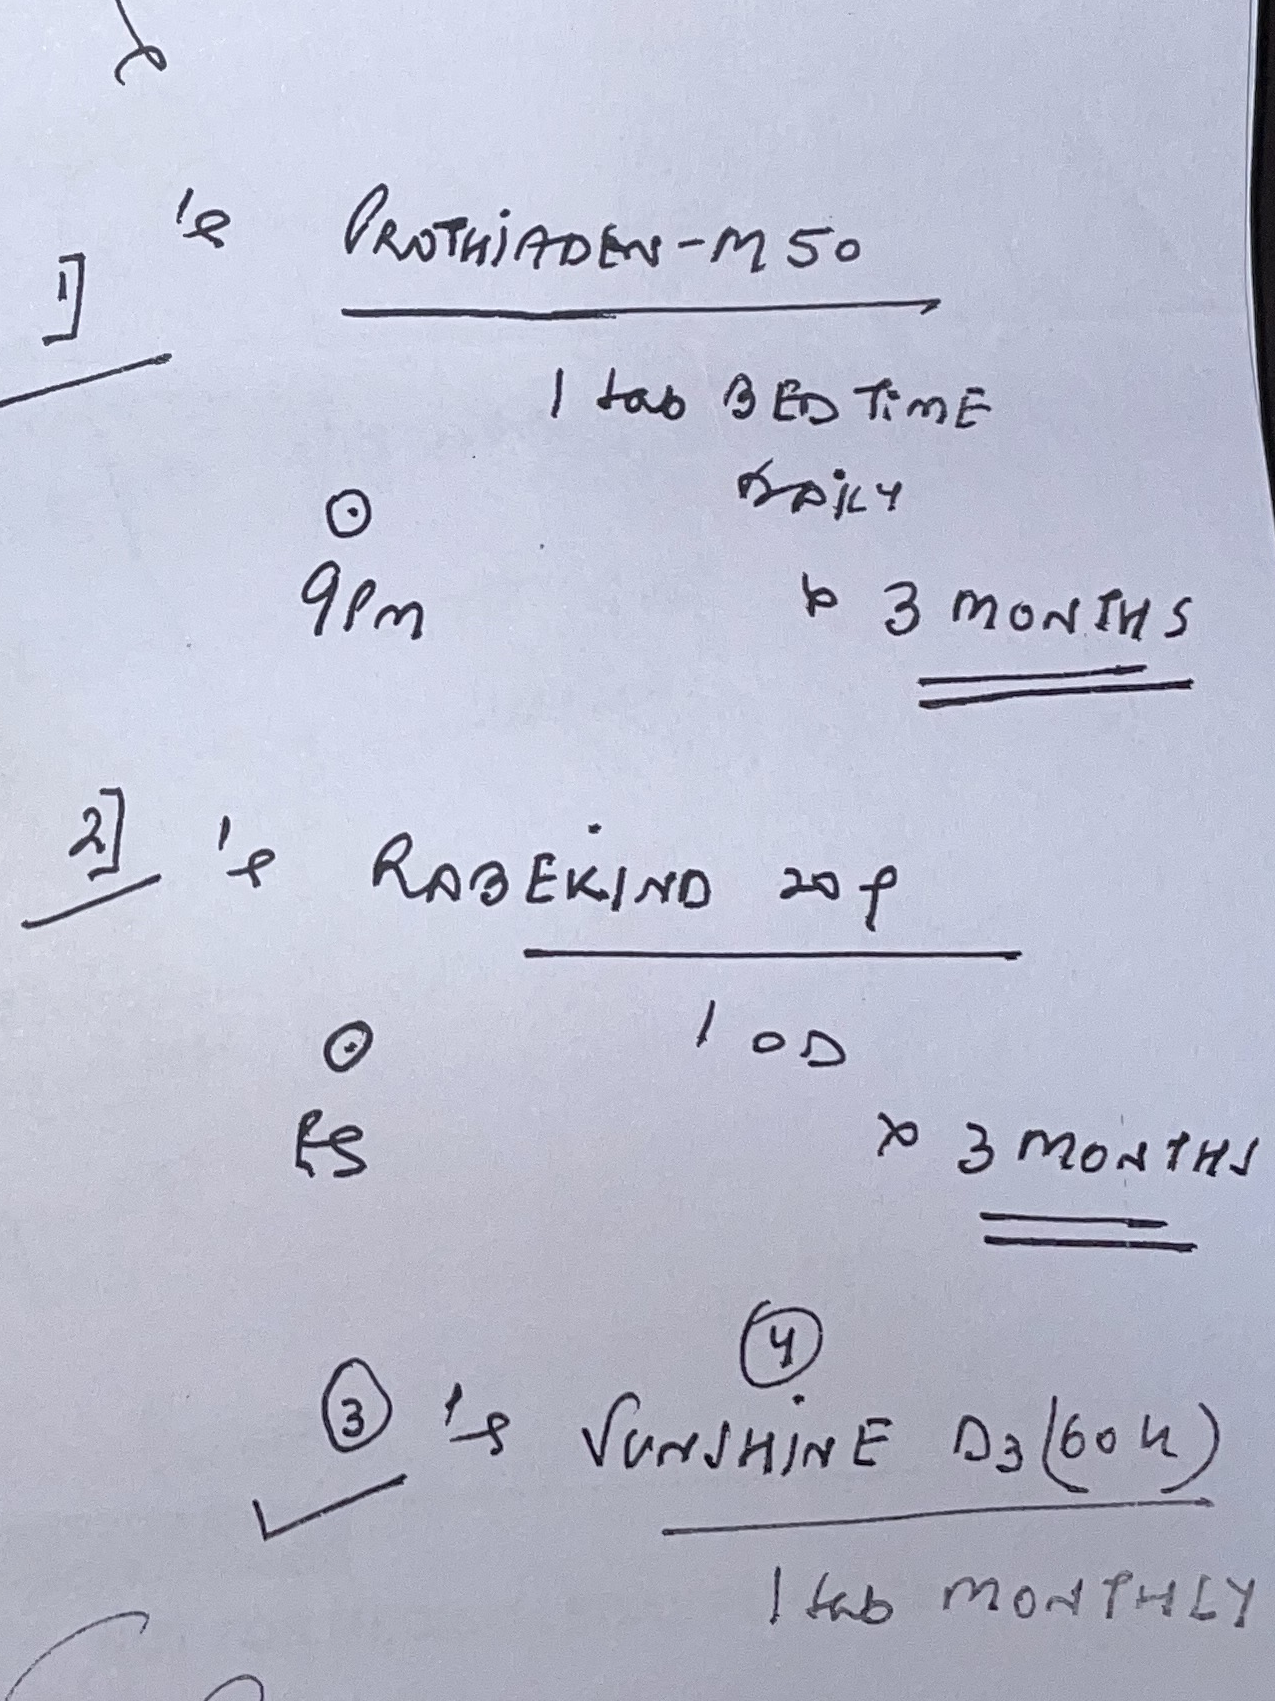 1] PROTHIADEN-M 50
1 tab BED TIME
DAILY
9PM x 3 MONTHS
2] RABEKIND 20
1 OD
x 3 MONTHS
4
3 SUNSHINE D3 (60K)
1 tab MONTHLY